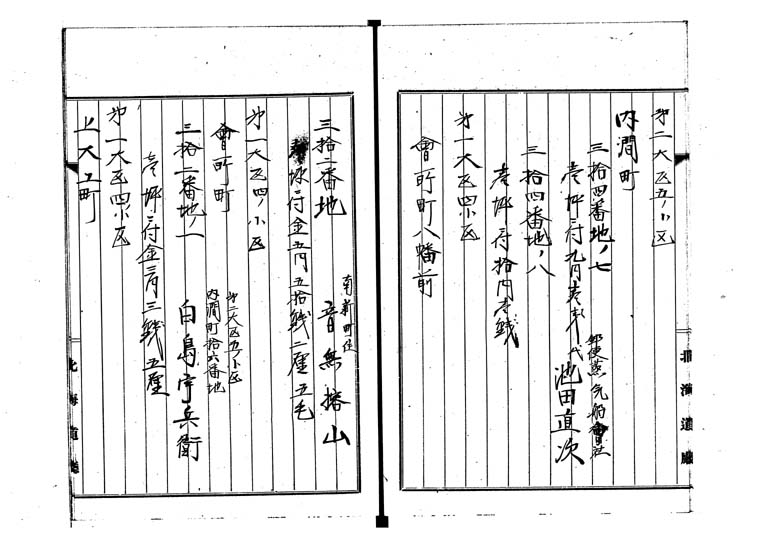 第二大区五ノ小区
内澗町
三拾四番地ノ七
壱坪ニ付九円壱
郵便蒸気船會社
代 池田直次
三拾四番地ノ八
壱坪ニ付拾円壱銭
第一大区四小区
會所町八幡前
北海道廳
三拾二番地
南新町住
音無榕山
壱坪ニ付金五円五拾銭二厘五毛
第一大区四ノ小区
會所町
第二大区五ノ小区
内澗町拾六番地
三拾二番地ノ一
白鳥宇兵衛
壱坪ニ付金三円三銭五厘
第一大区四小区
上大工町
北海道廳